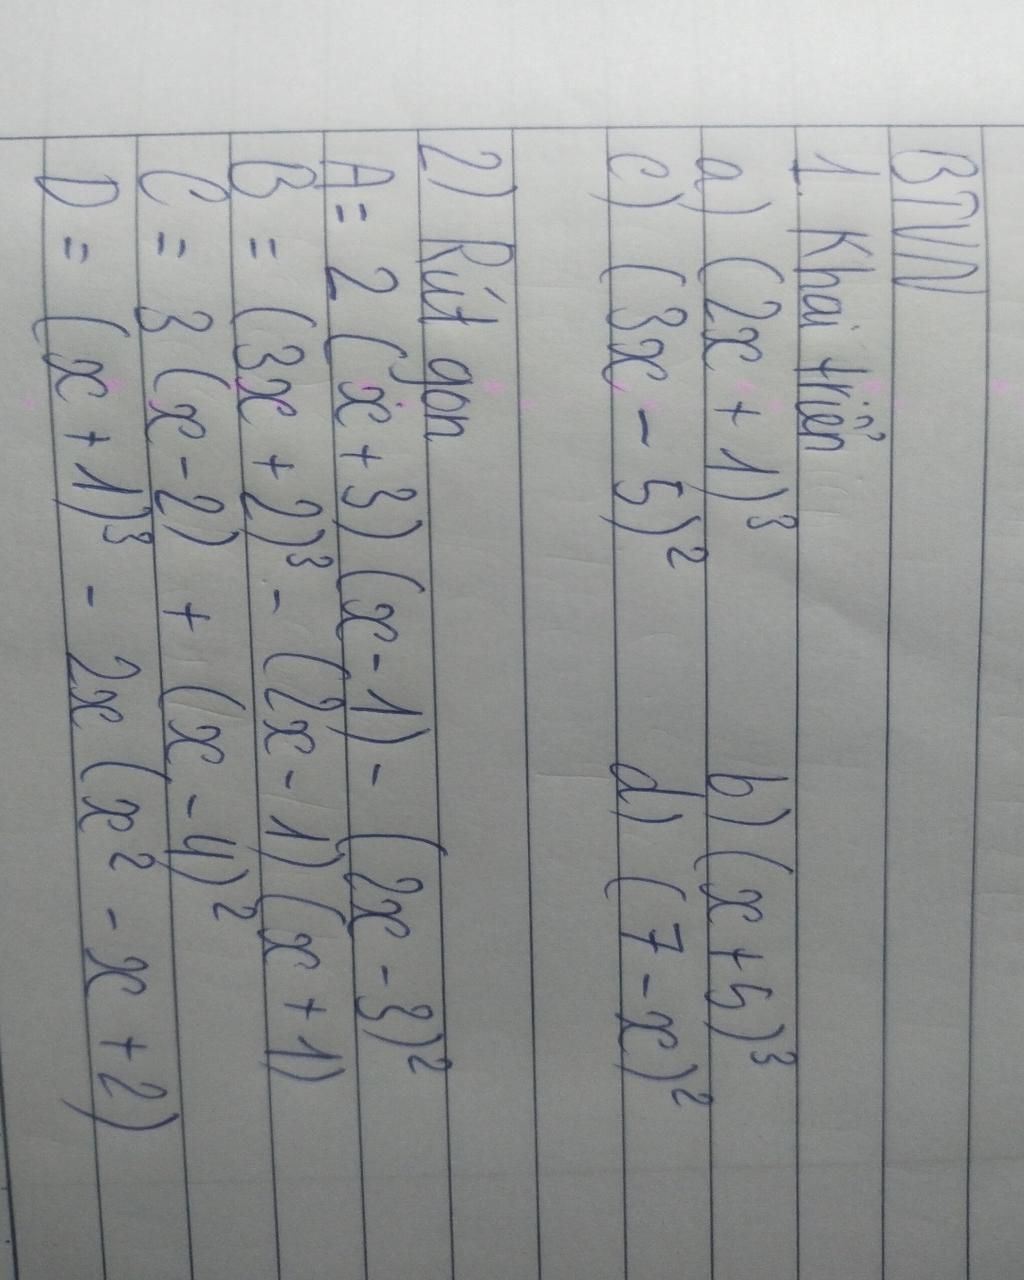 BTVN
1. Khai triển
a) (2x + 1)³ b) (x + 5)³
c) (3x - 5)² d) (7 - x)²
2) Rút gọn
A = 2 (x + 3) (x - 1) - (2x - 3)²
B = (3x + 2)³ - (2x - 1) (x + 1)
C = 3 (x - 2) + (x - 4)²
D = (x + 1)³ - 2x (x² - x + 2)